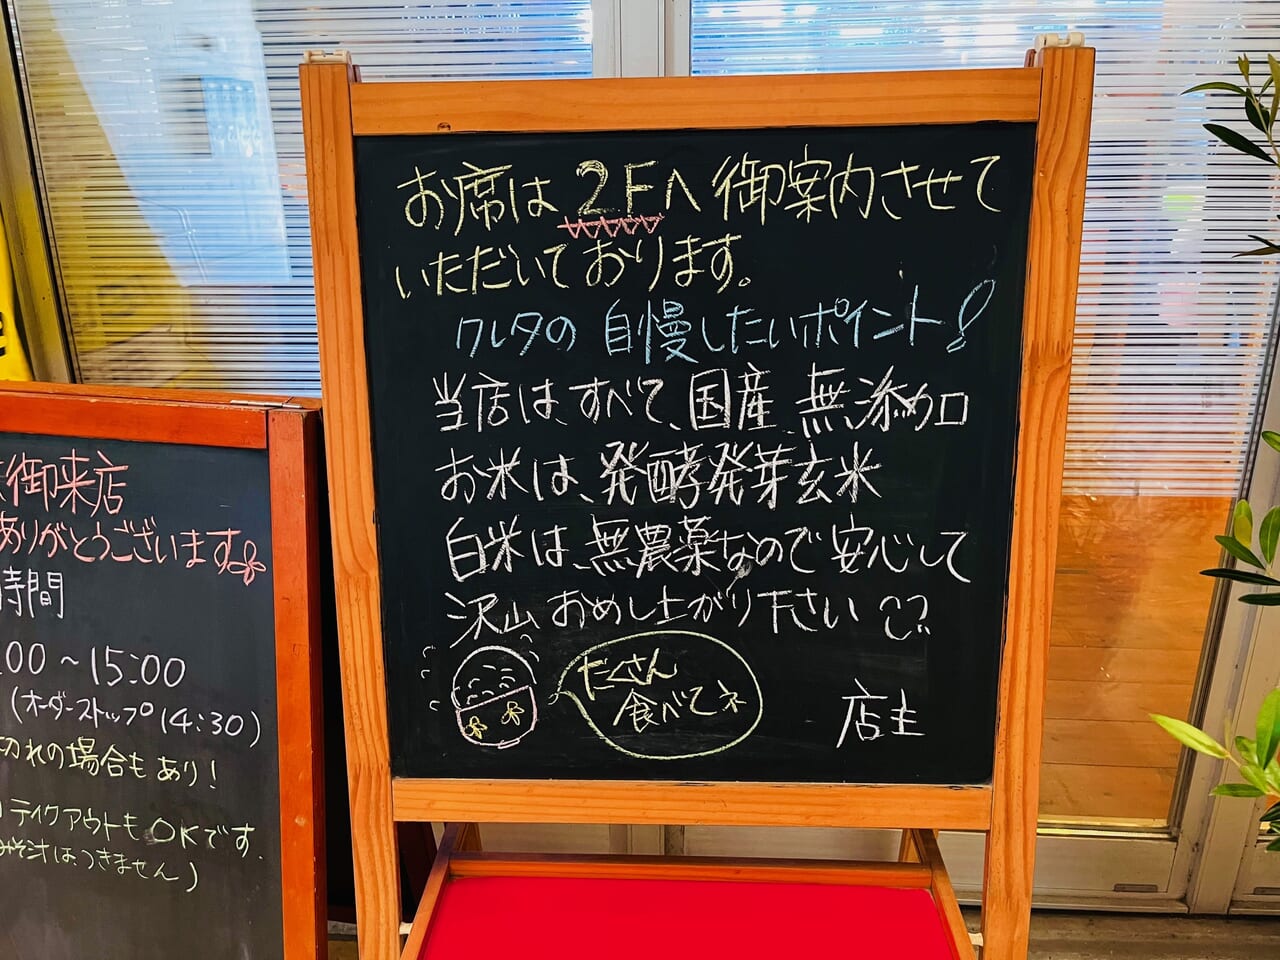 お席は2Fへ御案内させて
いただいております。
クレタの自慢したいポイント!
当店はすべて、国産、無添加
お米は、発酵発芽玄米
白米は、無農薬なので安心して
沢山おめし上がり下さい
たくさん
食べてネ
店主
御来店
ありがとうございます
時間
:00~15:00
(オーダーストップ14:30)
切れの場合もあり!
テイクアウトもOKです.
みそ汁は、つきません)